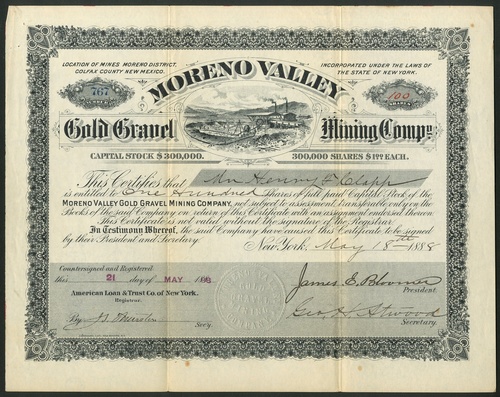 LOCATION OF MINES MORENO DISTRICT.
COLFAX COUNTY NEW MEXICO.
INCORPORATED UNDER THE LAWS OF
THE STATE OF NEW YORK.
MORENO VALLEY
767
NUMBER
100
SHARES
Gold Gravel Mining Compy.
CAPITAL STOCK $300,000.
300,000 SHARES $1.00 EACH.
This Certifies that Mr Henry F Clapp
is entitled to One Hundred Shares of full paid Capital Stock of the
MORENO VALLEY GOLD GRAVEL MINING COMPANY, not subject to assessment, transferable only on the
Books of the said Company on return of this Certificate with an assignment endorsed thereon.
This Certificate is not valid without the signature of the Registrar.
In Testimony Whereof, the said Company have caused this Certificate to be signed
by their President and Secretary.
New York, May 18th 1888
Countersigned and Registered
this 21 day of MAY 1888
American Loan & Trust Co. of New York.
Registrar.
By Secy.
James E. Bloomer
President.
Geo. H. Atwood
Secretary.